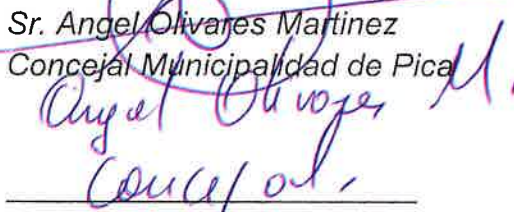 Sr. Angel Olivares Martinez
Concejal Municipalidad de Pica
Angel Olivares M.
Concejal.